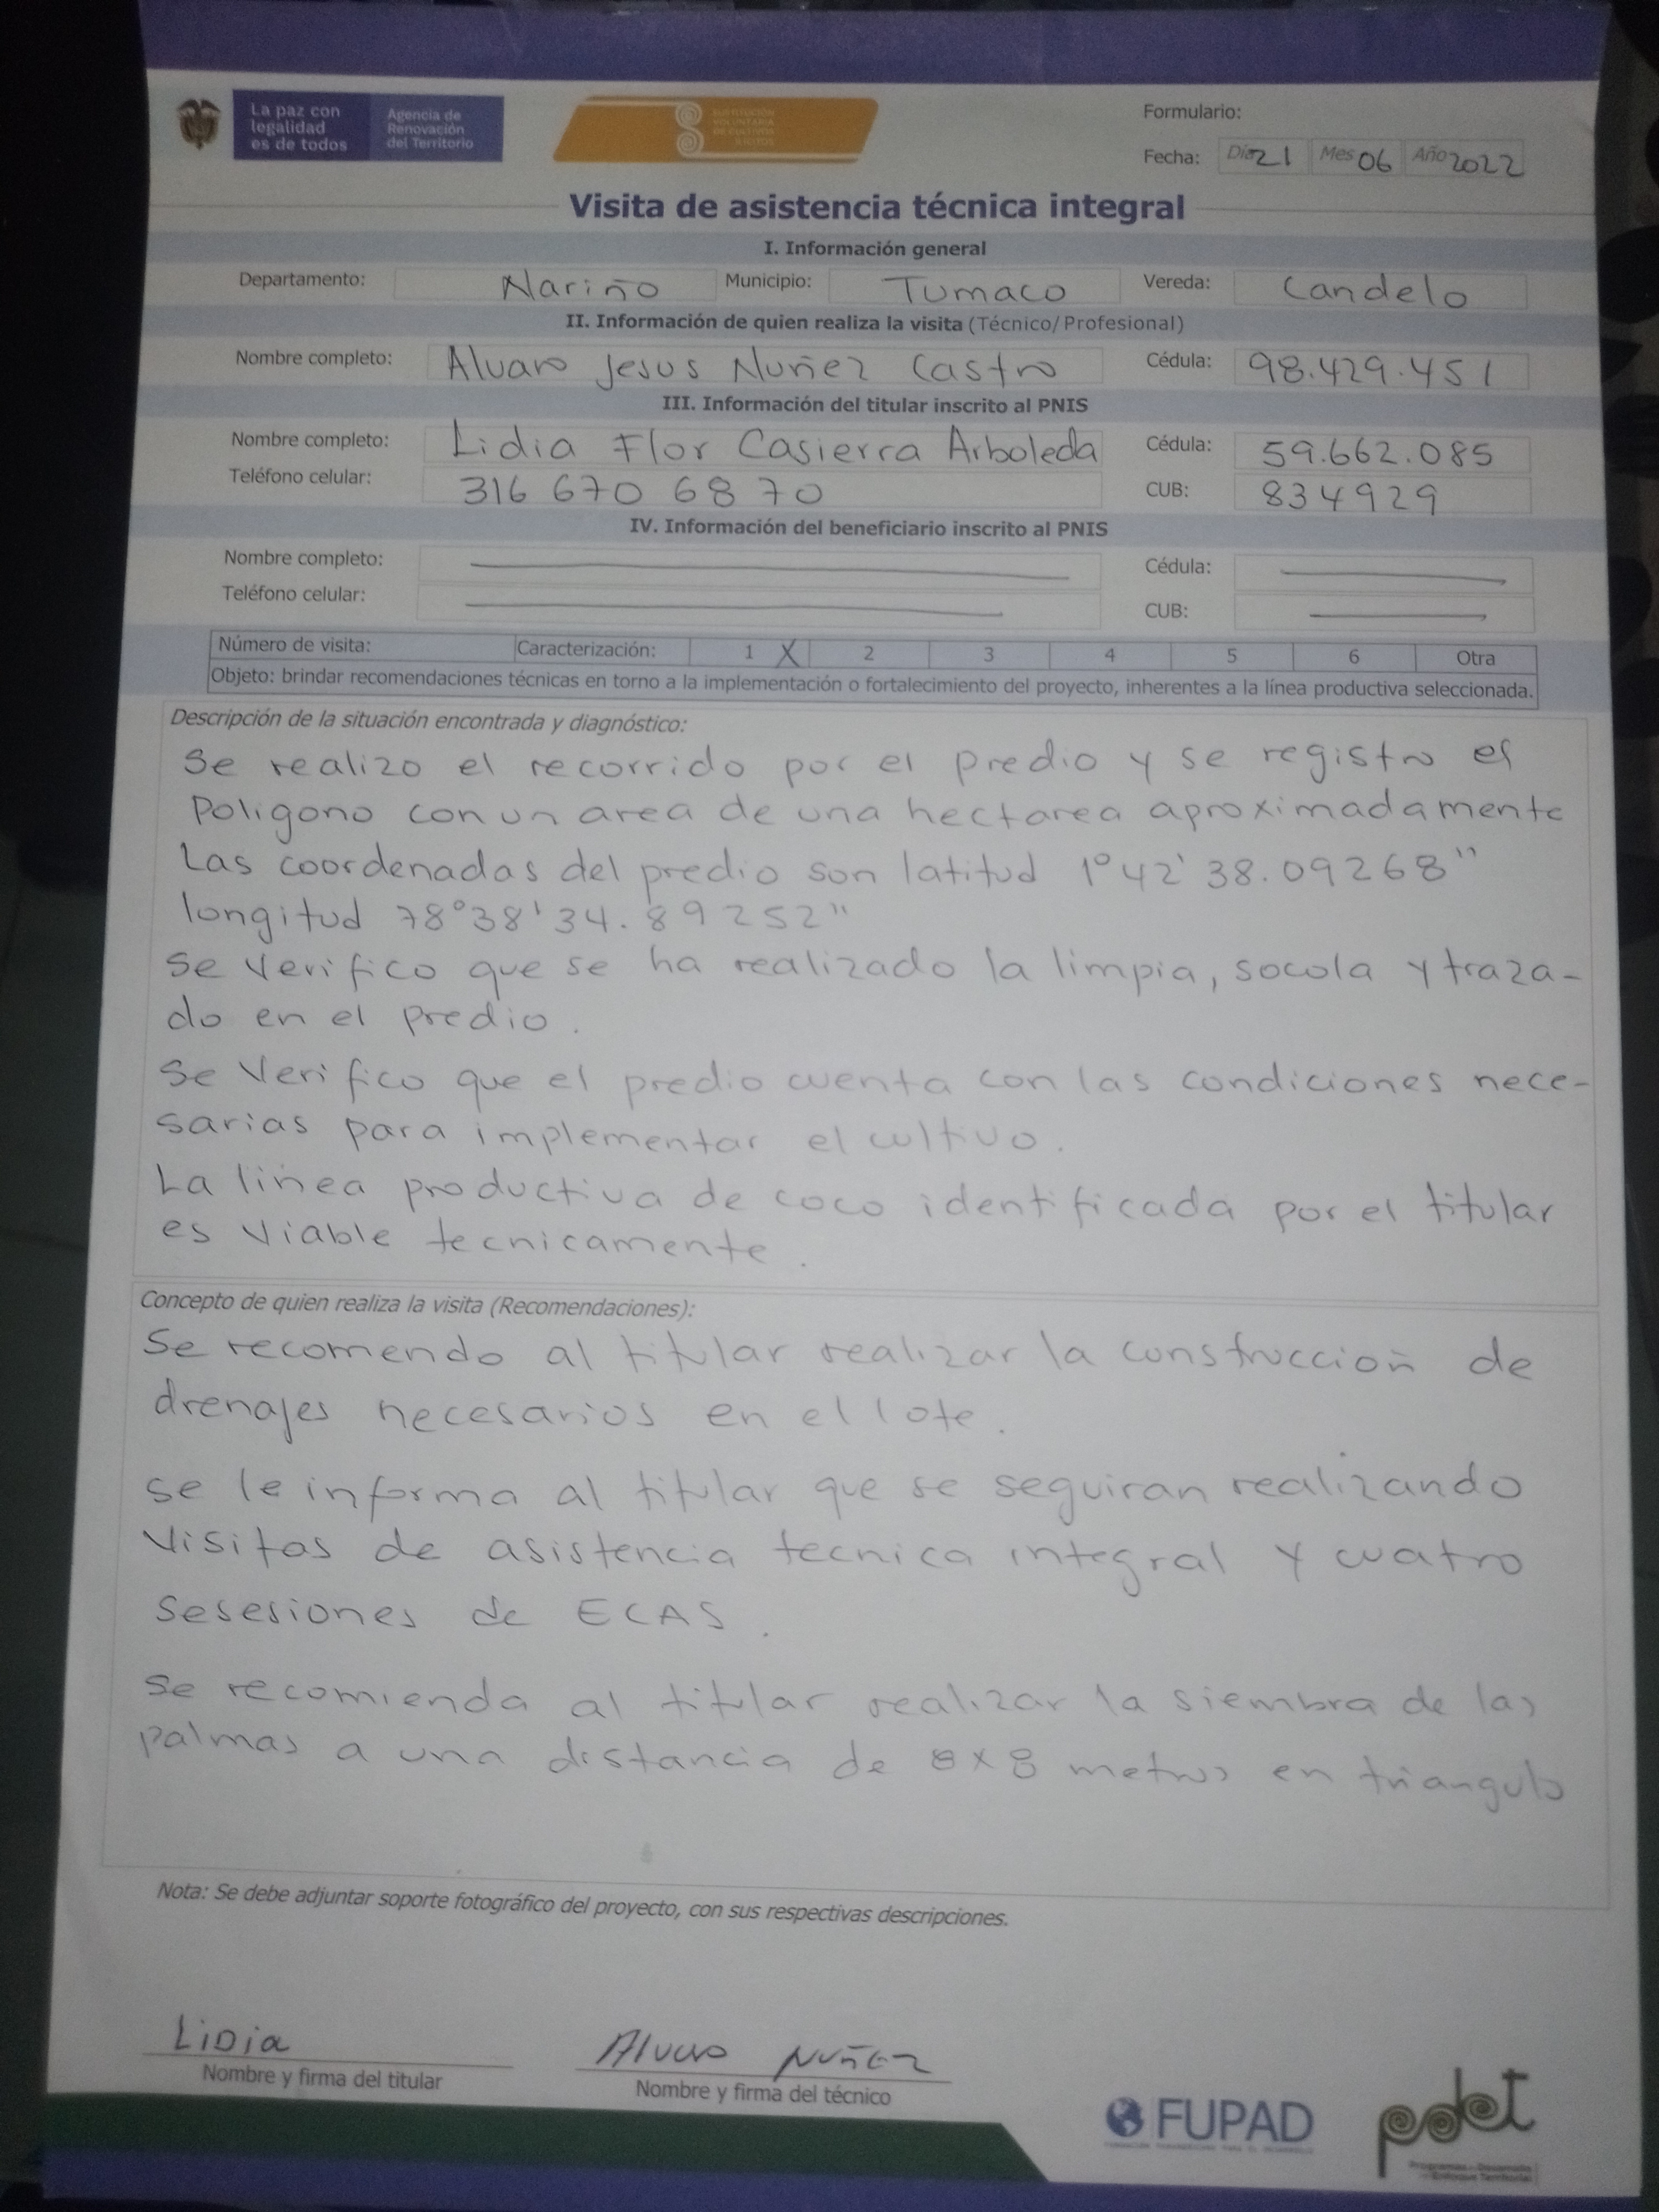 La paz con
legalidad
es de todos
Agencia de
Renovación
del Territorio
SUSTITUCIÓN
VOLUNTARIA
DE CULTIVOS
ILÍCITOS
Formulario:
Fecha: Día 21 Mes 06 Año 2022
Visita de asistencia técnica integral
I. Información general
Departamento: Nariño Municipio: Tumaco Vereda: Candelo
II. Información de quien realiza la visita (Técnico/Profesional)
Nombre completo: Alvaro Jesus Nuñez Castro Cédula: 98.429.451
III. Información del titular inscrito al PNIS
Nombre completo: Lidia Flor Casierra Arboleda Cédula: 59.662.085
Teléfono celular: 316 670 6870 CUB: 834929
IV. Información del beneficiario inscrito al PNIS
Nombre completo: Cédula:
Teléfono celular: CUB:
Número de visita: Caracterización: 1 X 2 3 4 5 6 Otra
Objeto: brindar recomendaciones técnicas en torno a la implementación o fortalecimiento del proyecto, inherentes a la línea productiva seleccionada.
Descripción de la situación encontrada y diagnóstico:
Se realizo el recorrido por el predio y se registro el
poligono con un area de una hectarea aproximadamente
Las coordenadas del predio son latitud 1°42'38.09268"
longitud 78°38'34.89252"
Se verifico que se ha realizado la limpia, socola y traza-
do en el predio.
Se verifico que el predio cuenta con las condiciones nece-
sarias para implementar el cultivo.
La linea productiva de coco identificada por el titular
es viable tecnicamente.
Concepto de quien realiza la visita (Recomendaciones):
Se recomendo al titular realizar la construccion de
drenajes necesarios en el lote.
Se le informa al titular que se seguiran realizando
visitas de asistencia tecnica integral y cuatro
sesesiones de ECAS.
Se recomienda al titular realizar la siembra de las
palmas a una distancia de 8x8 metros en triangulo
Nota: Se debe adjuntar soporte fotográfico del proyecto, con sus respectivas descripciones.
LiDia
Nombre y firma del titular
Alvaro Nuñez
Nombre y firma del técnico
FUPAD
pdet
Programas de Desarrollo
con Enfoque Territorial